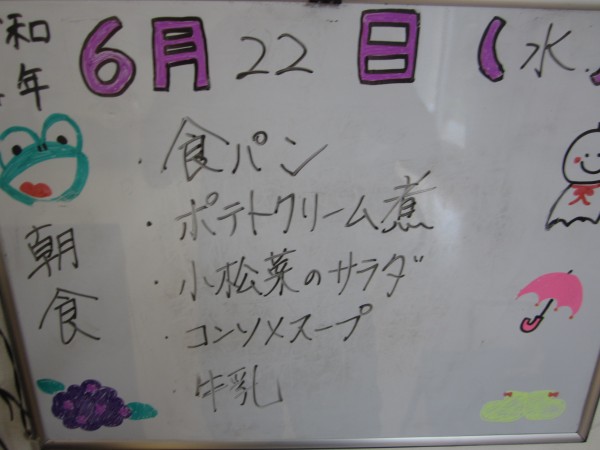 和 年
6月22日(水)
朝食
・食パン
・ポテトクリーム煮
・小松菜のサラダ
・コンソメスープ
・牛乳